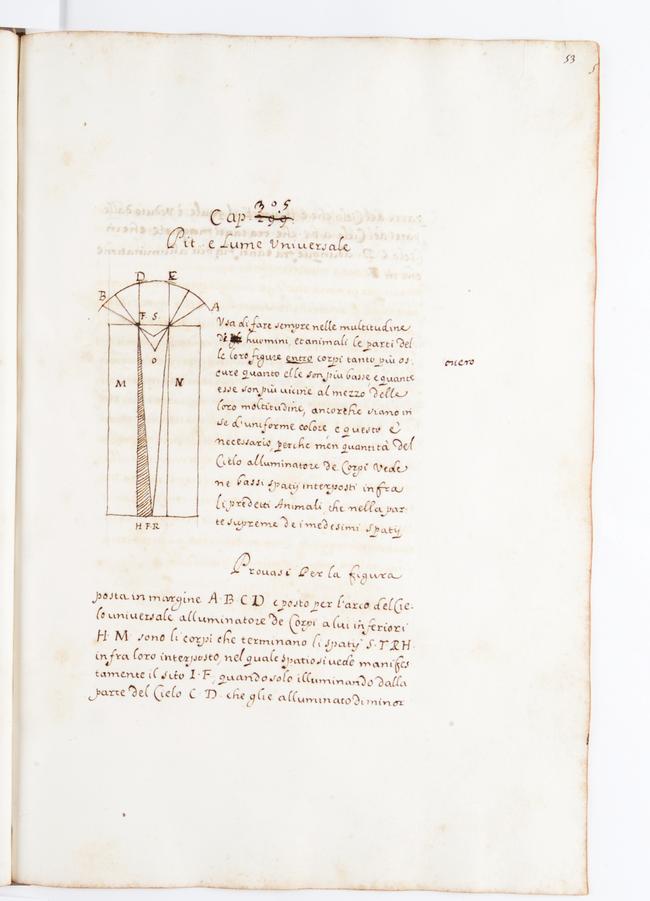 53
Cap. 305
299
Pit. e Lume Universale
B D E A
F S
O
M N
H F R
Usa di fare sempre nelle multitudine
Di huomini, et animali le parti del
le loro figure entro corpi tanto più os-
cure quanto elle son più basse, e quante
esse son più vicine al mezzo delle
loro moltitudine, ancorche siano in
se d'uniforme colore e questo è
necessario, perche men quantità del
Cielo alluminatore de Corpi vede
ne bassi spatij interposti infra
li predetti Animali, che nella par-
te supreme de i medesimi spatij
overo
Provasi Per la figura
posta in margine A·B·C·D e posto per l'arco del Cie-
lo universale alluminatore de Corpi a lui inferiori
H·M· sono li corpi che terminano li spatij S·T·R·H·
infra loro interposto, nel quale spatio si vede manifes
tamente il sito I·F, quando solo illuminando dalla
parte del Cielo C·D· che glie alluminato di minor